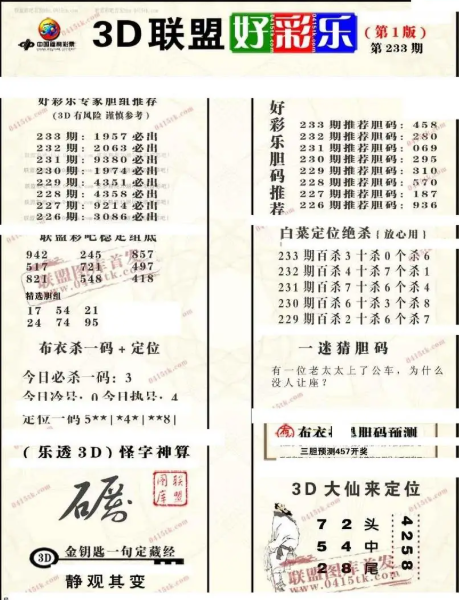 中国福利彩票
3D联盟好彩乐
(第1版)
第233期
好彩乐专家胆组推荐
(3D有风险 谨慎参考)
233期:1957必出
232期:2063必出
231期:9380必出
230期:1974必出
229期:4351必出
228期:4358必出
227期:9214必出
226期:3086必出
好彩乐胆码推荐
233期推荐胆码:458
232期推荐胆码:280
231期推荐胆码:069
230期推荐胆码:295
229期推荐胆码:310
228期推荐胆码:570
227期推荐胆码:187
226期推荐胆码:936
联盟彩吧稳定组底
942 245 857
517 721 497
821 548 418
精选胆组
17 54 21
24 74 95
白菜定位绝杀(放心用)
233期百杀3十杀0个杀6
232期百杀4十杀7个杀1
231期百杀7十杀6个杀4
230期百杀6十杀3个杀8
229期百杀2十杀6个杀7
布衣杀一码+定位
今日必杀一码:3
今日冷号:0今日热号:4
定位一码5**|*4*|**8|
一迷猜胆码
有一位老太太上了公车,为什么
没人让座?
布衣 胆码预测
三胆预测457开奖
(乐透3D)怪字神算
联盟图库
3D 金钥匙一句定藏经
静观其变
3D大仙来定位
7 2 头
5 4 中
2 8 尾
4258
联盟图库首发
www.0415tk.com